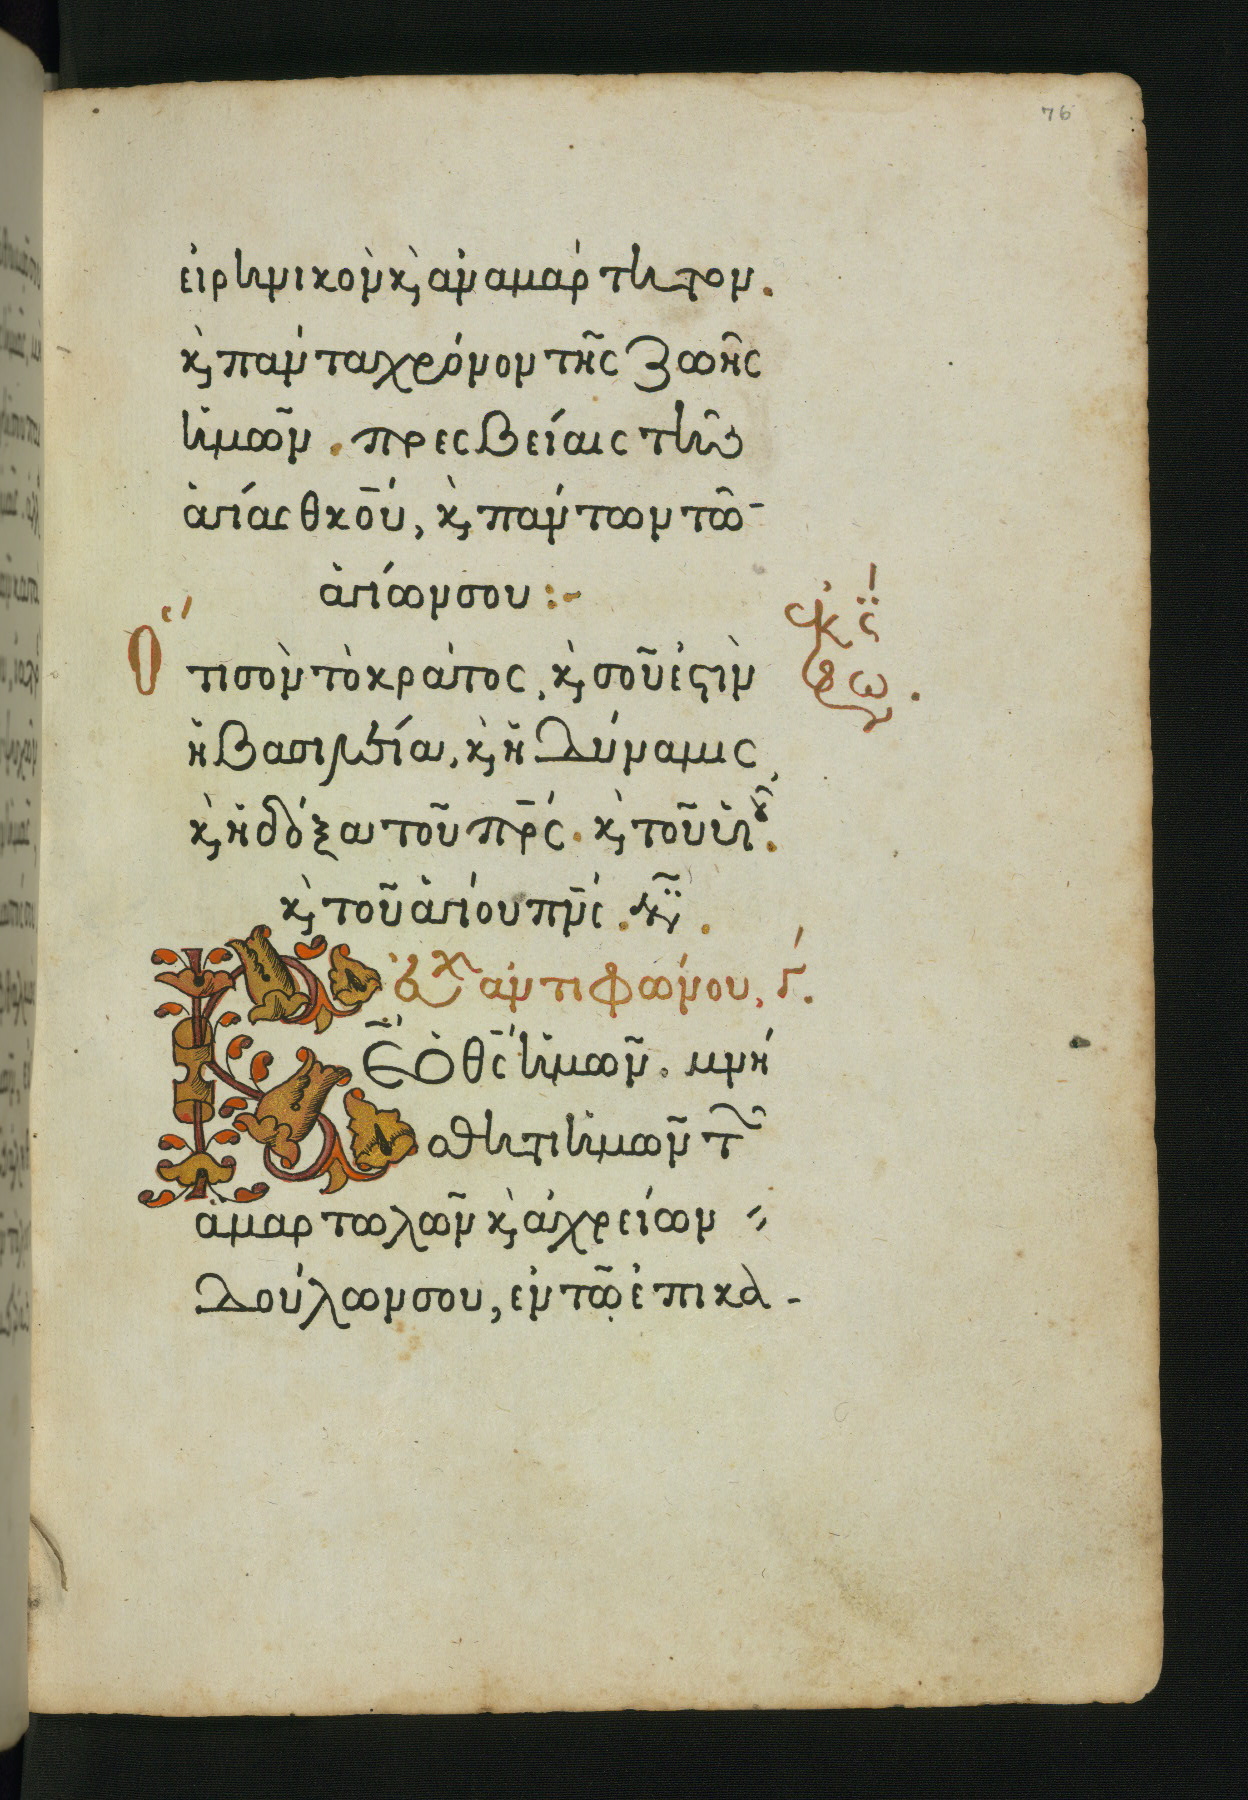 76
εἰρηνικὸν κ̀ ἀναμάρτητον.
κ̀ πάντα χρόνον τῆς ζωῆς
ἡμῶν. πρεσβείαις τῆς
ἁγίας θκ̅ου, κ̀ πάντων τῶ-
ἁγίων σου :-
Ὅτι σὸν τὸ κράτος, κ̀ σοῦ ἐστὶν
ἡ βασιλεία, κ̀ ἡ δύναμις,
κ̀ ἡ δόξα τοῦ πρ̅ς. κ̀ τοῦ ὑιοῦ.
κ̀ τοῦ ἁγίου πν̅ς. νῦν.
ἐκφω.
εὐχ ἀντιφώνου, γ'.
Κ̅Ε ὁ θς̅ ἡμῶν. μνή
σθητι ἡμῶν τ
ἁμαρτωλῶν κ̀ ἀχρείων
δούλων σου, ἐν τῷ ἐπικα-